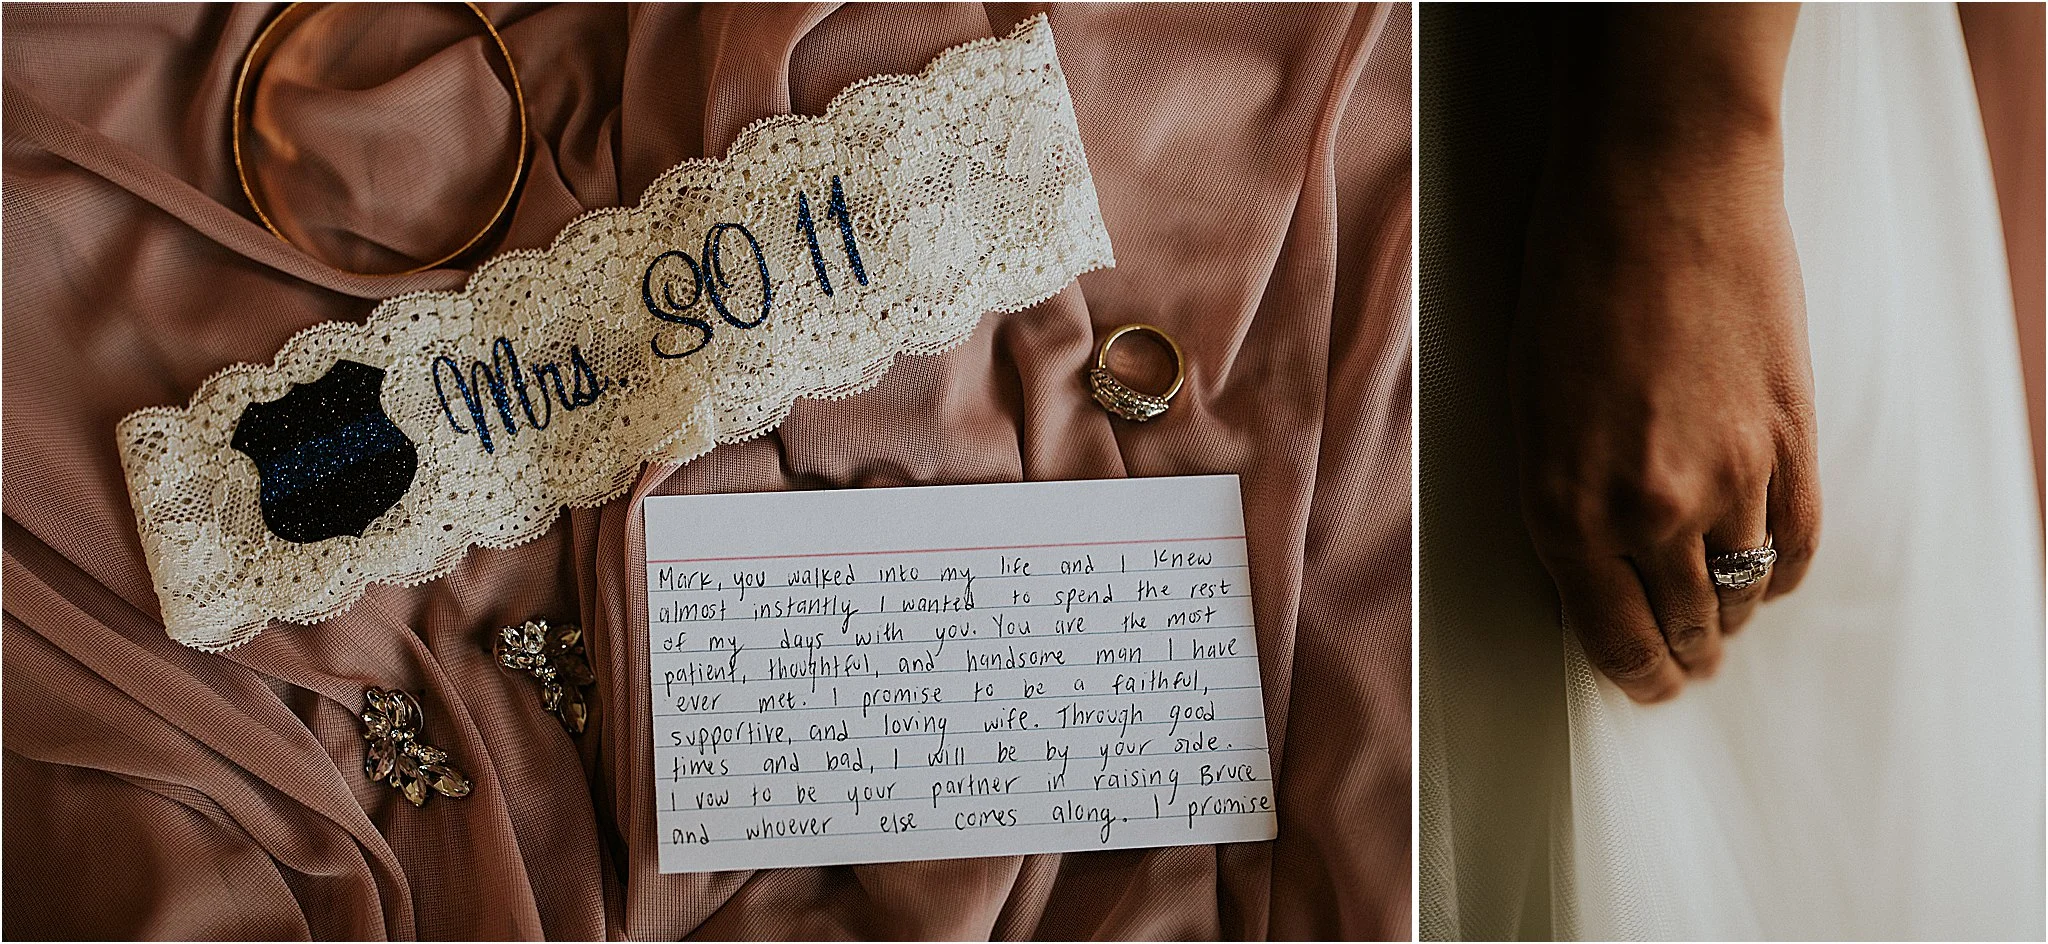 Mrs. SO 11
Mark, you walked into my life and I knew
almost instantly I wanted to spend the rest
of my days with you. You are the most
patient, thoughtful, and handsome man I have
ever met. I promise to be a faithful,
supportive, and loving wife. Through good
times and bad, I will be by your side.
I vow to be your partner in raising Bruce
and whoever else comes along. I promise